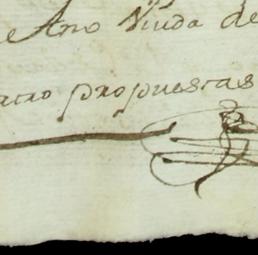 e Ano Viuda de
atro propuestas